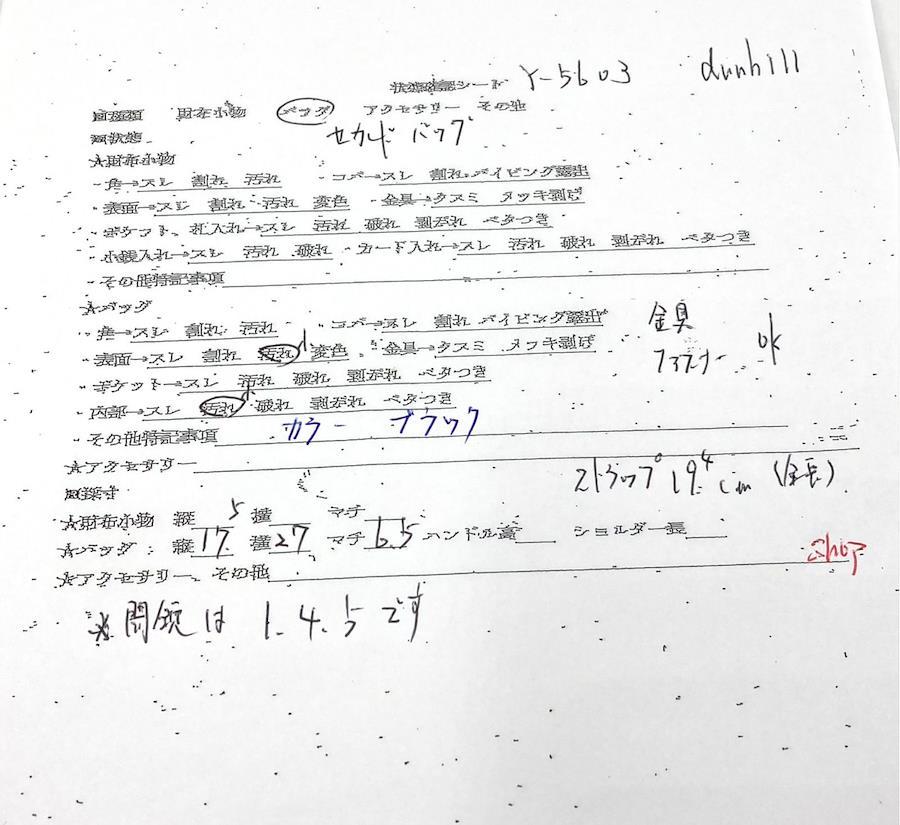 状態確認シート Y-5603 dunhill
財布小物 バッグ アクセサリー その他
セカンドバッグ
★財布小物
・角→スレ 割れ 汚れ ・コバ→スレ 割れ パイピング露出
・表面→スレ 割れ 汚れ 変色 ・金具→クスミ メッキ剥げ
・ポケット、札入れ→スレ 汚れ 破れ 剥がれ ベタつき
・小銭入れ→スレ 汚れ 破れ ・カード入れ→スレ 汚れ 破れ 剥がれ ベタつき
・その他特記事項
★バッグ
・角→スレ 割れ 汚れ ・コバ→スレ 割れ パイピング露出
金具
・表面→スレ 割れ 汚れ 小 変色 ・金具→クスミ メッキ剥げ
ファスナー OK
・ポケット→スレ 汚れ 破れ 剥がれ ベタつき
・内部→スレ 汚れ 小 破れ 剥がれ ベタつき
・その他特記事項 カラー ブラック
★アクセサリー
ストラップ 19.4cm (全長)
★財布小物 縦 横 マチ
★バッグ:縦17.5 横27 マチ6.5 ハンドル高 ショルダー長
★アクセサリー、その他
※開錠は 1.4.5です